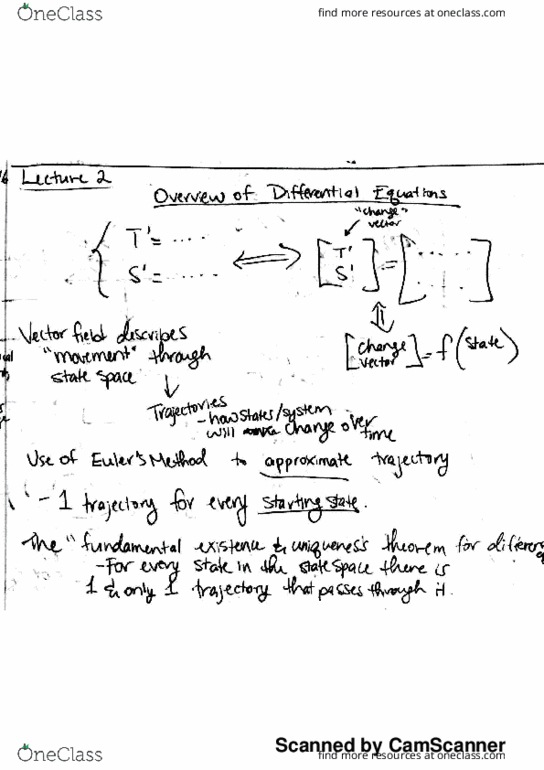 OneClass
find more resources at oneclass.com
Lecture 2
Overview of Differential Equations
"change"
vector
T' = ....
S' = .....
[T' S'] = [..... ..]
[change vector] = f(state)
Vector field describes
"movement" through
state space
Trajectories
- how states/system
will change over
time
Use of Euler's Method to approximate trajectory
- 1 trajectory for every starting state.
The "fundamental existence & uniqueness theorem for differen
- For every state in the state space there is
1 & only 1 trajectory that passes through it.
Scanned by CamScanner
OneClass
find more resources at oneclass.com